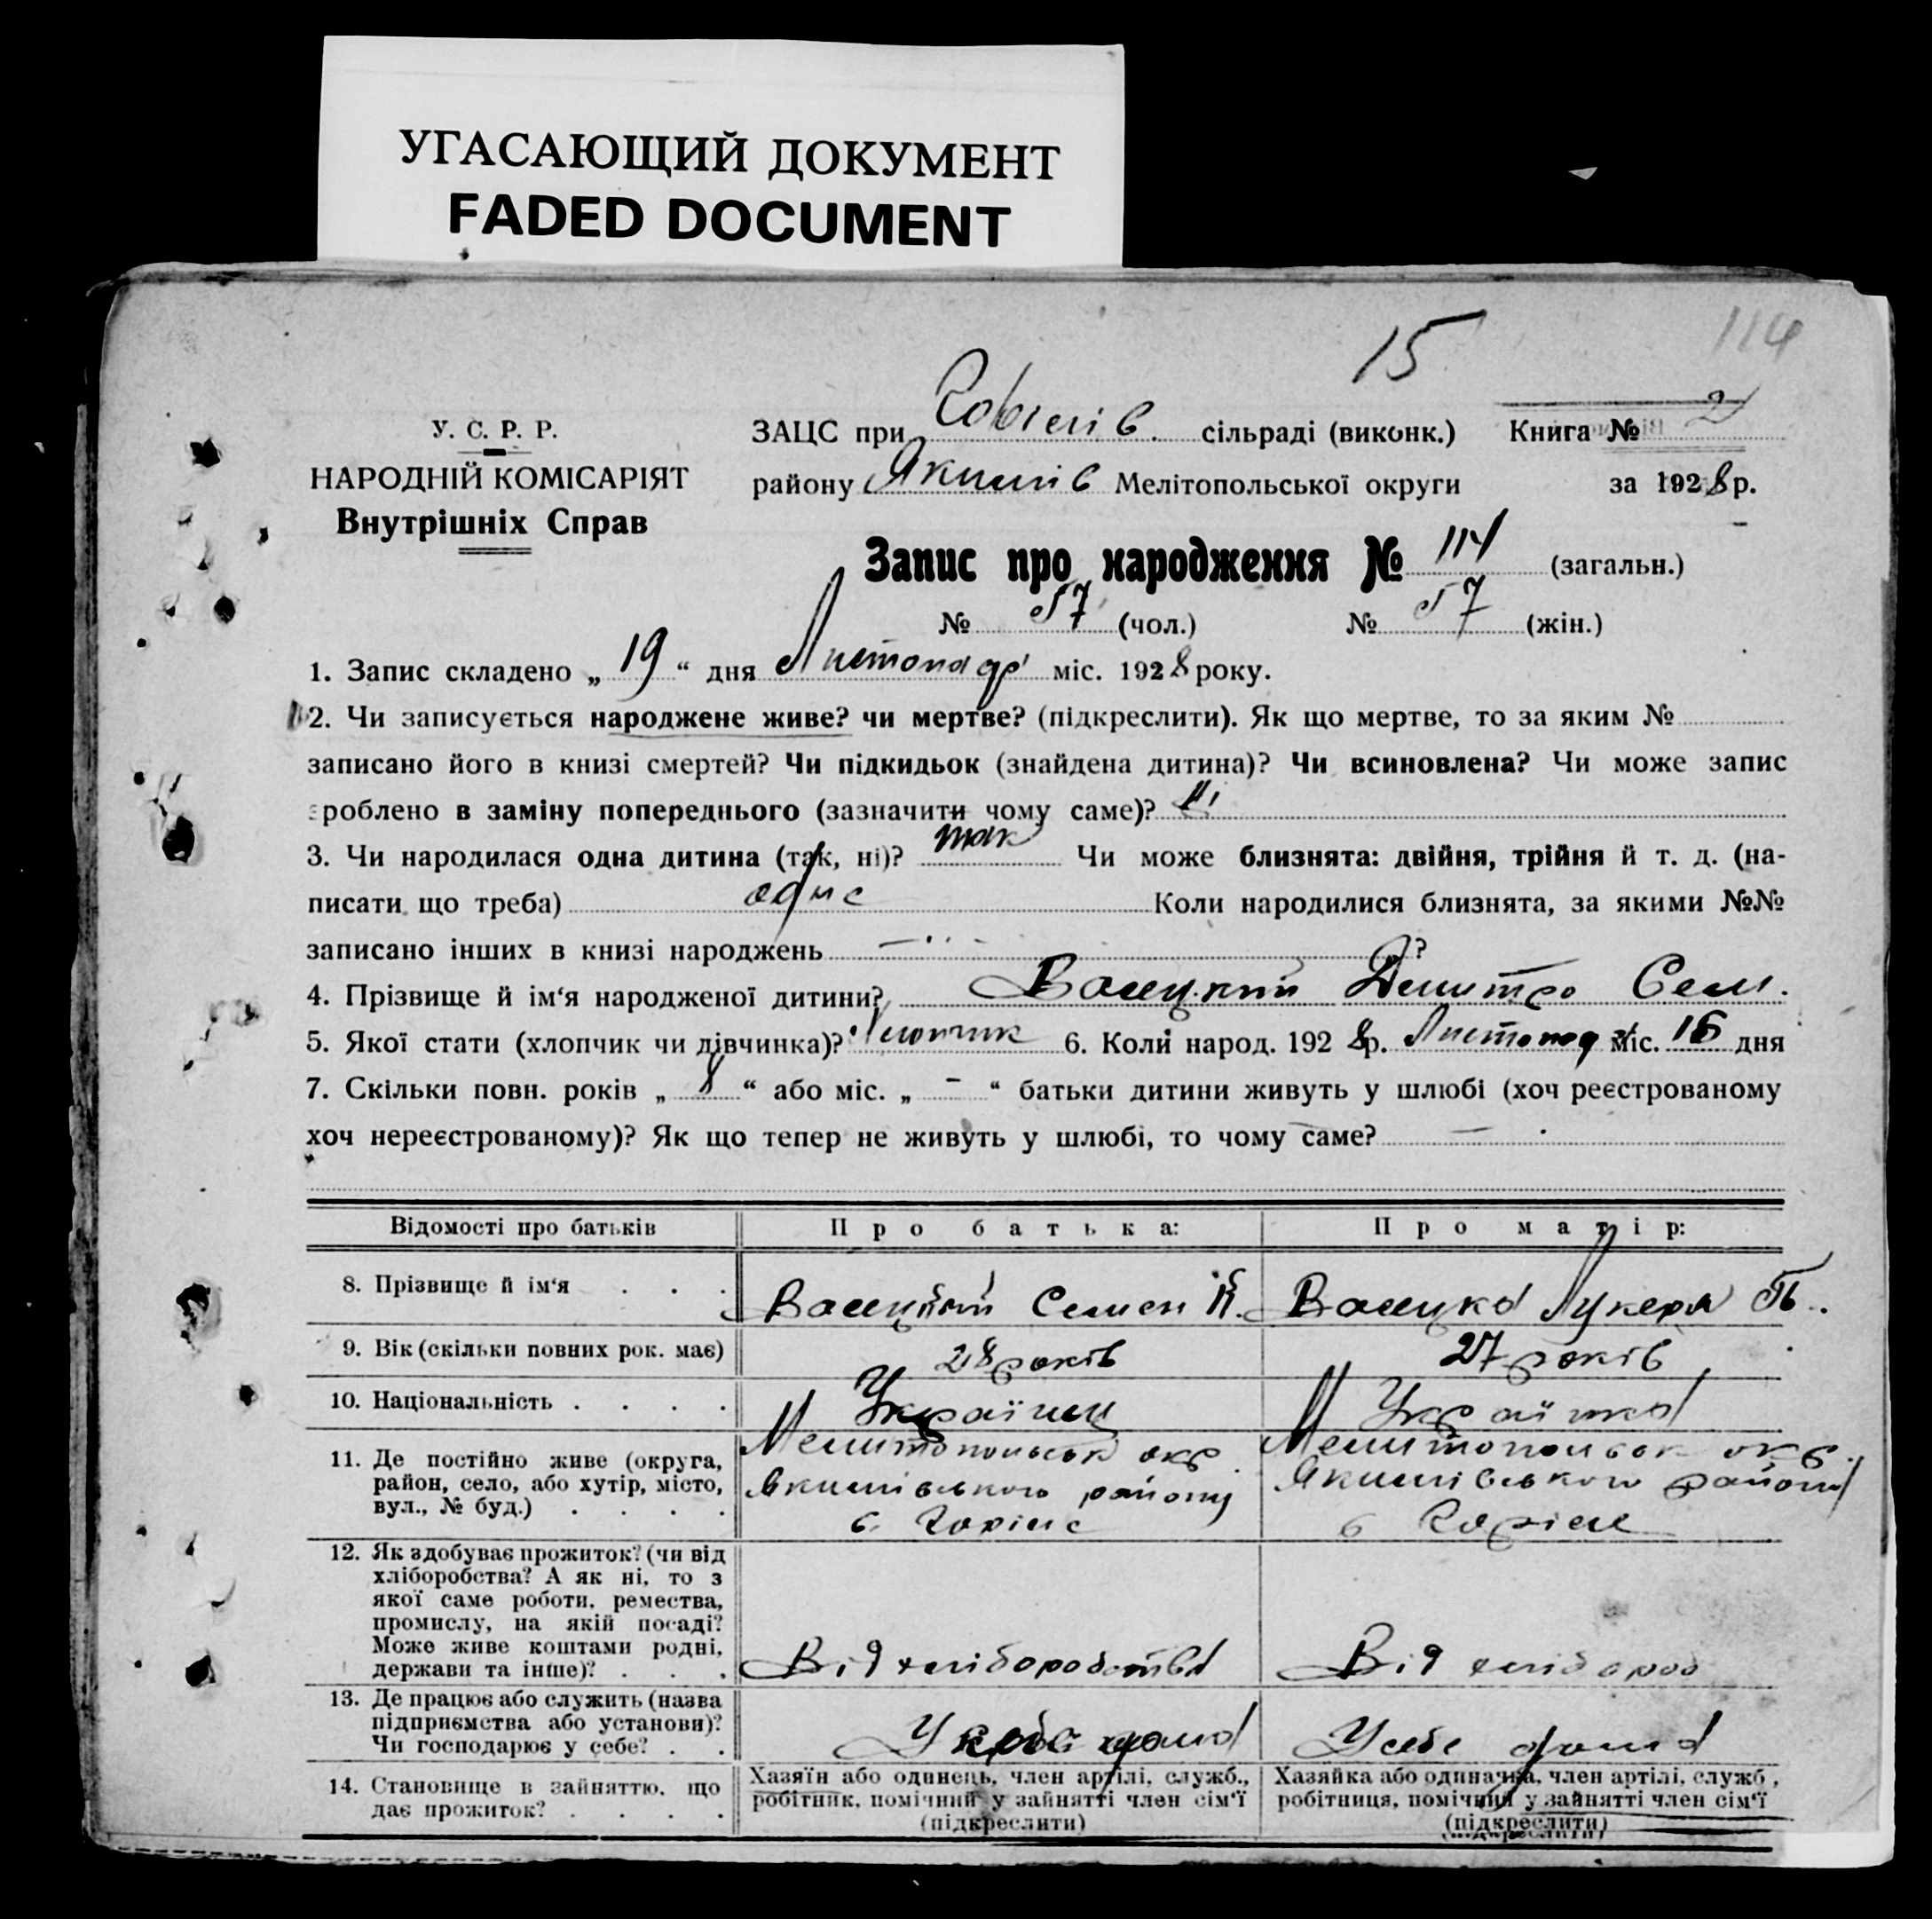 УГАСАЮЩИЙ ДОКУМЕНТ
FADED DOCUMENT
15
114
У. С. Р. Р.
НАРОДНІЙ КОМІСАРІЯТ
Внутрішніх Справ
ЗАЦС при сільраді (виконк.) Книга № 2
району Якимів Мелітопольської округи за 1928 р.
Запис про народження № 114 (загальн.)
№ 57 (чол.) № 57 (жін.)
1. Запис складено „ 19 “ дня Листопада міс. 1928 року.
2. Чи записується народжене живе? чи мертве? (підкреслити). Як що мертве, то за яким №
записано його в книзі смертей? Чи підкидьок (знайдена дитина)? Чи всиновлена? Чи може запис
зроблено в заміну попереднього (зазначити чому саме)? Ні
3. Чи народилася одна дитина (так, ні)? так Чи може близнята: двійня, трійня й т. д. (на-
писати що треба) одне Коли народилися близнята, за якими №№
записано інших в книзі народжень ?
4. Прізвище й ім‘я народженої дитини? Дмитро Сем.
5. Якої стати (хлопчик чи дівчинка)? Хлопчик 6. Коли народ. 192 8 р. Листопад міс. 16 дня
7. Скільки повн. років „ 8 “ або міс. „ - “ батьки дитини живуть у шлюбі (хоч реєстрованому
хоч нереєстрованому)? Як що тепер не живуть у шлюбі, то чому саме? —
Відомості про батьків Про батька: Про матір:
8. Прізвище й ім‘я . . . Семен Лукеря
9. Вік (скільки повних рок. має) 28 років 27 років
10. Національність . . . . Українец Українка
11. Де постійно живе (округа, Мелитопольськ окр. Мелитопольськ окр.
район, село, або хутір, місто, Якимівського району Якимівського району
вул., № буд.) . . . .
12. Як здобуває прожиток? (чи від
хліборобства? А як ні, то з
якої саме роботи, ремества,
промислу, на якій посаді?
Може живе коштами родні,
держави та інше)? . . . Від хліборобства Від хлібороб
13. Де працює або служить (назва
підприємства або установи)?
Чи господарює у себе? . . У себе дома У себе дома
14. Становище в зайняттю, що
дає прожиток? . . . .
Хазяїн або одинець, член артілі, служб.,
робітник, помічний у зайнятті член сім‘ї
(підкреслити)
Хазяйка або одиначка, член артілі, служб.,
робітниця, помічниця у зайнятті член сім‘ї
(підкреслити)